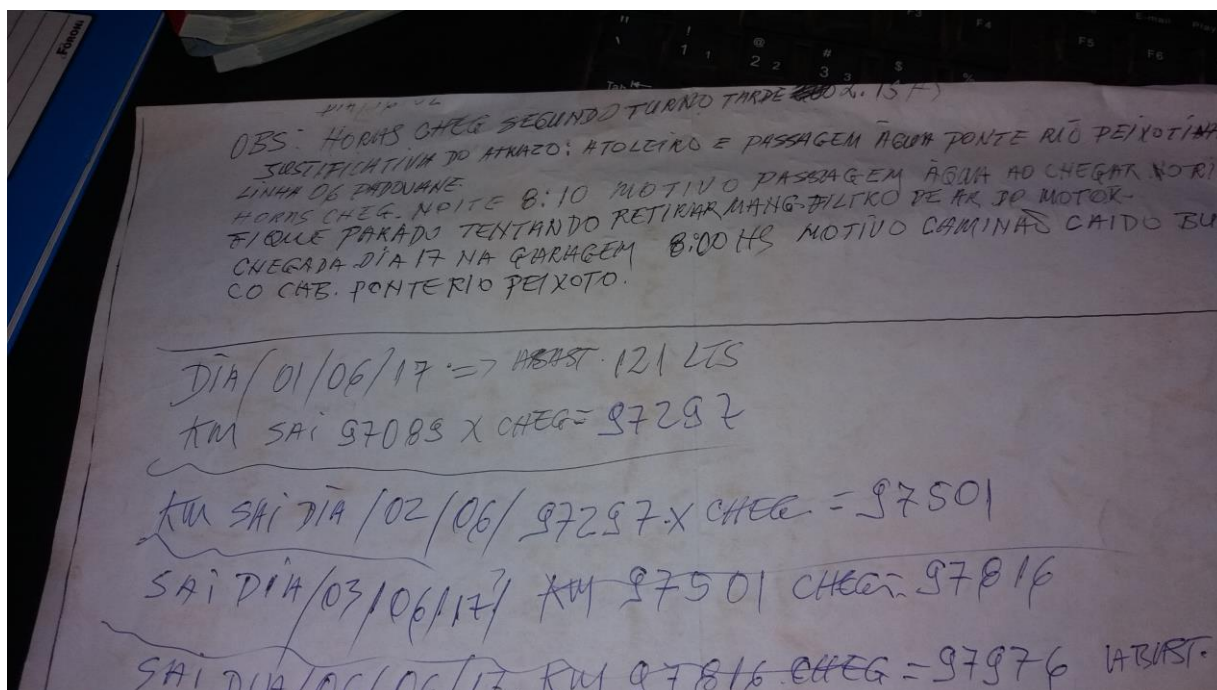 FORONI
OBS: HORAS CHEG SEGUNDO TURNO TARDE 2.15 H
JUSTIFICATIVA DO ATRAZO: ATOLEIRO E PASSAGEM ÁGUA PONTE RIO PEIXOTINHO
LINHA 06 PADOVANE.
HORAS CHEG. NOITE 8:10 MOTIVO PASSAGEM ÁGUA AO CHEGAR NO RI
FIQUE PARADO TENTANDO RETIRAR MANG. FILTRO DE AR DO MOTOR.
CHEGADA DIA 17 NA GARAGEM 8:00 HS MOTIVO CAMINÃO CAIDO BU
CO CAB. PONTE RIO PEIXOTO.
DIA/01/06/17 => ABAST. 121 LTS
KM SAI 97089 X CHEG = 97297
KM SAI DIA/02/06/ 97297 X CHEG = 97501
SAI DIA/03/06/17/ KM 97501 CHEG = 97816
SAI DIA KM 97816 CHEG = 97976 ABAST.